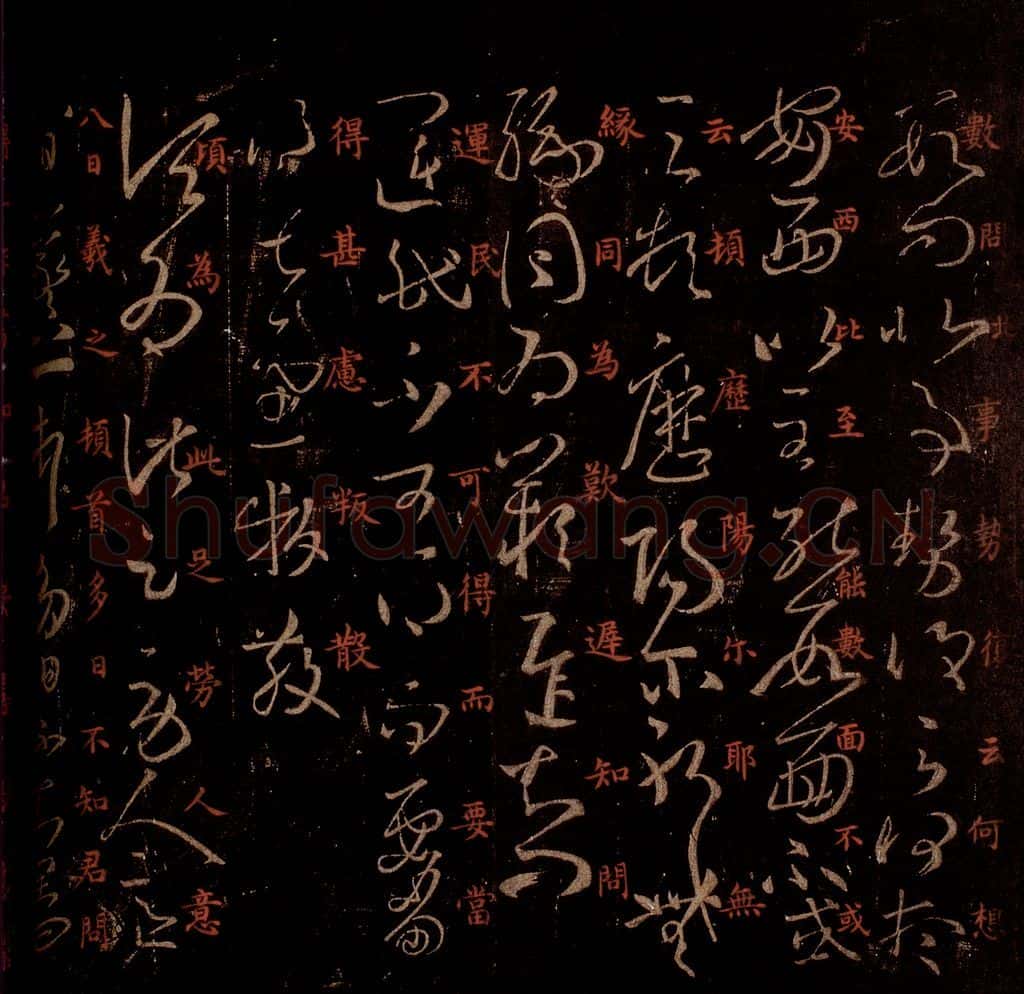 數問北事勢復云何想
安西比至能數面不或
云頓歷陽尔耶無
緣同為歎遲知問
運民不可得而要當
得甚慮叛散
頃為此足勞人意
八日羲之頓首多日不知君問
Shufawang.CN